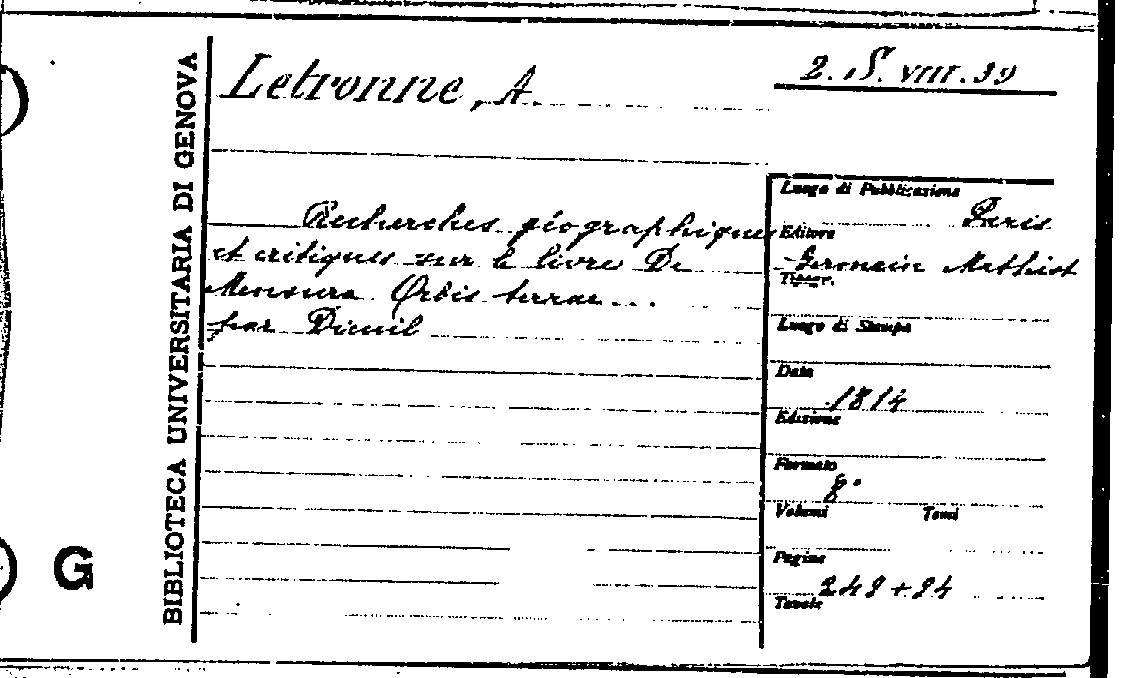 BIBLIOTECA UNIVERSITARIA DI GENOVA
G
Letronne, A.
2. S. VIII. 39
Recherches géographiques
et critiques sur le livre De
Mensura Orbis terrae...
par Dicuil
Luogo di Pubblicazione
Paris
Editore
Germain Mathiot
Tipogr.
Luogo di Stampa
Data
1814
Edizione
Formato
8°
Volumi Tomi
Pagine
Tavole